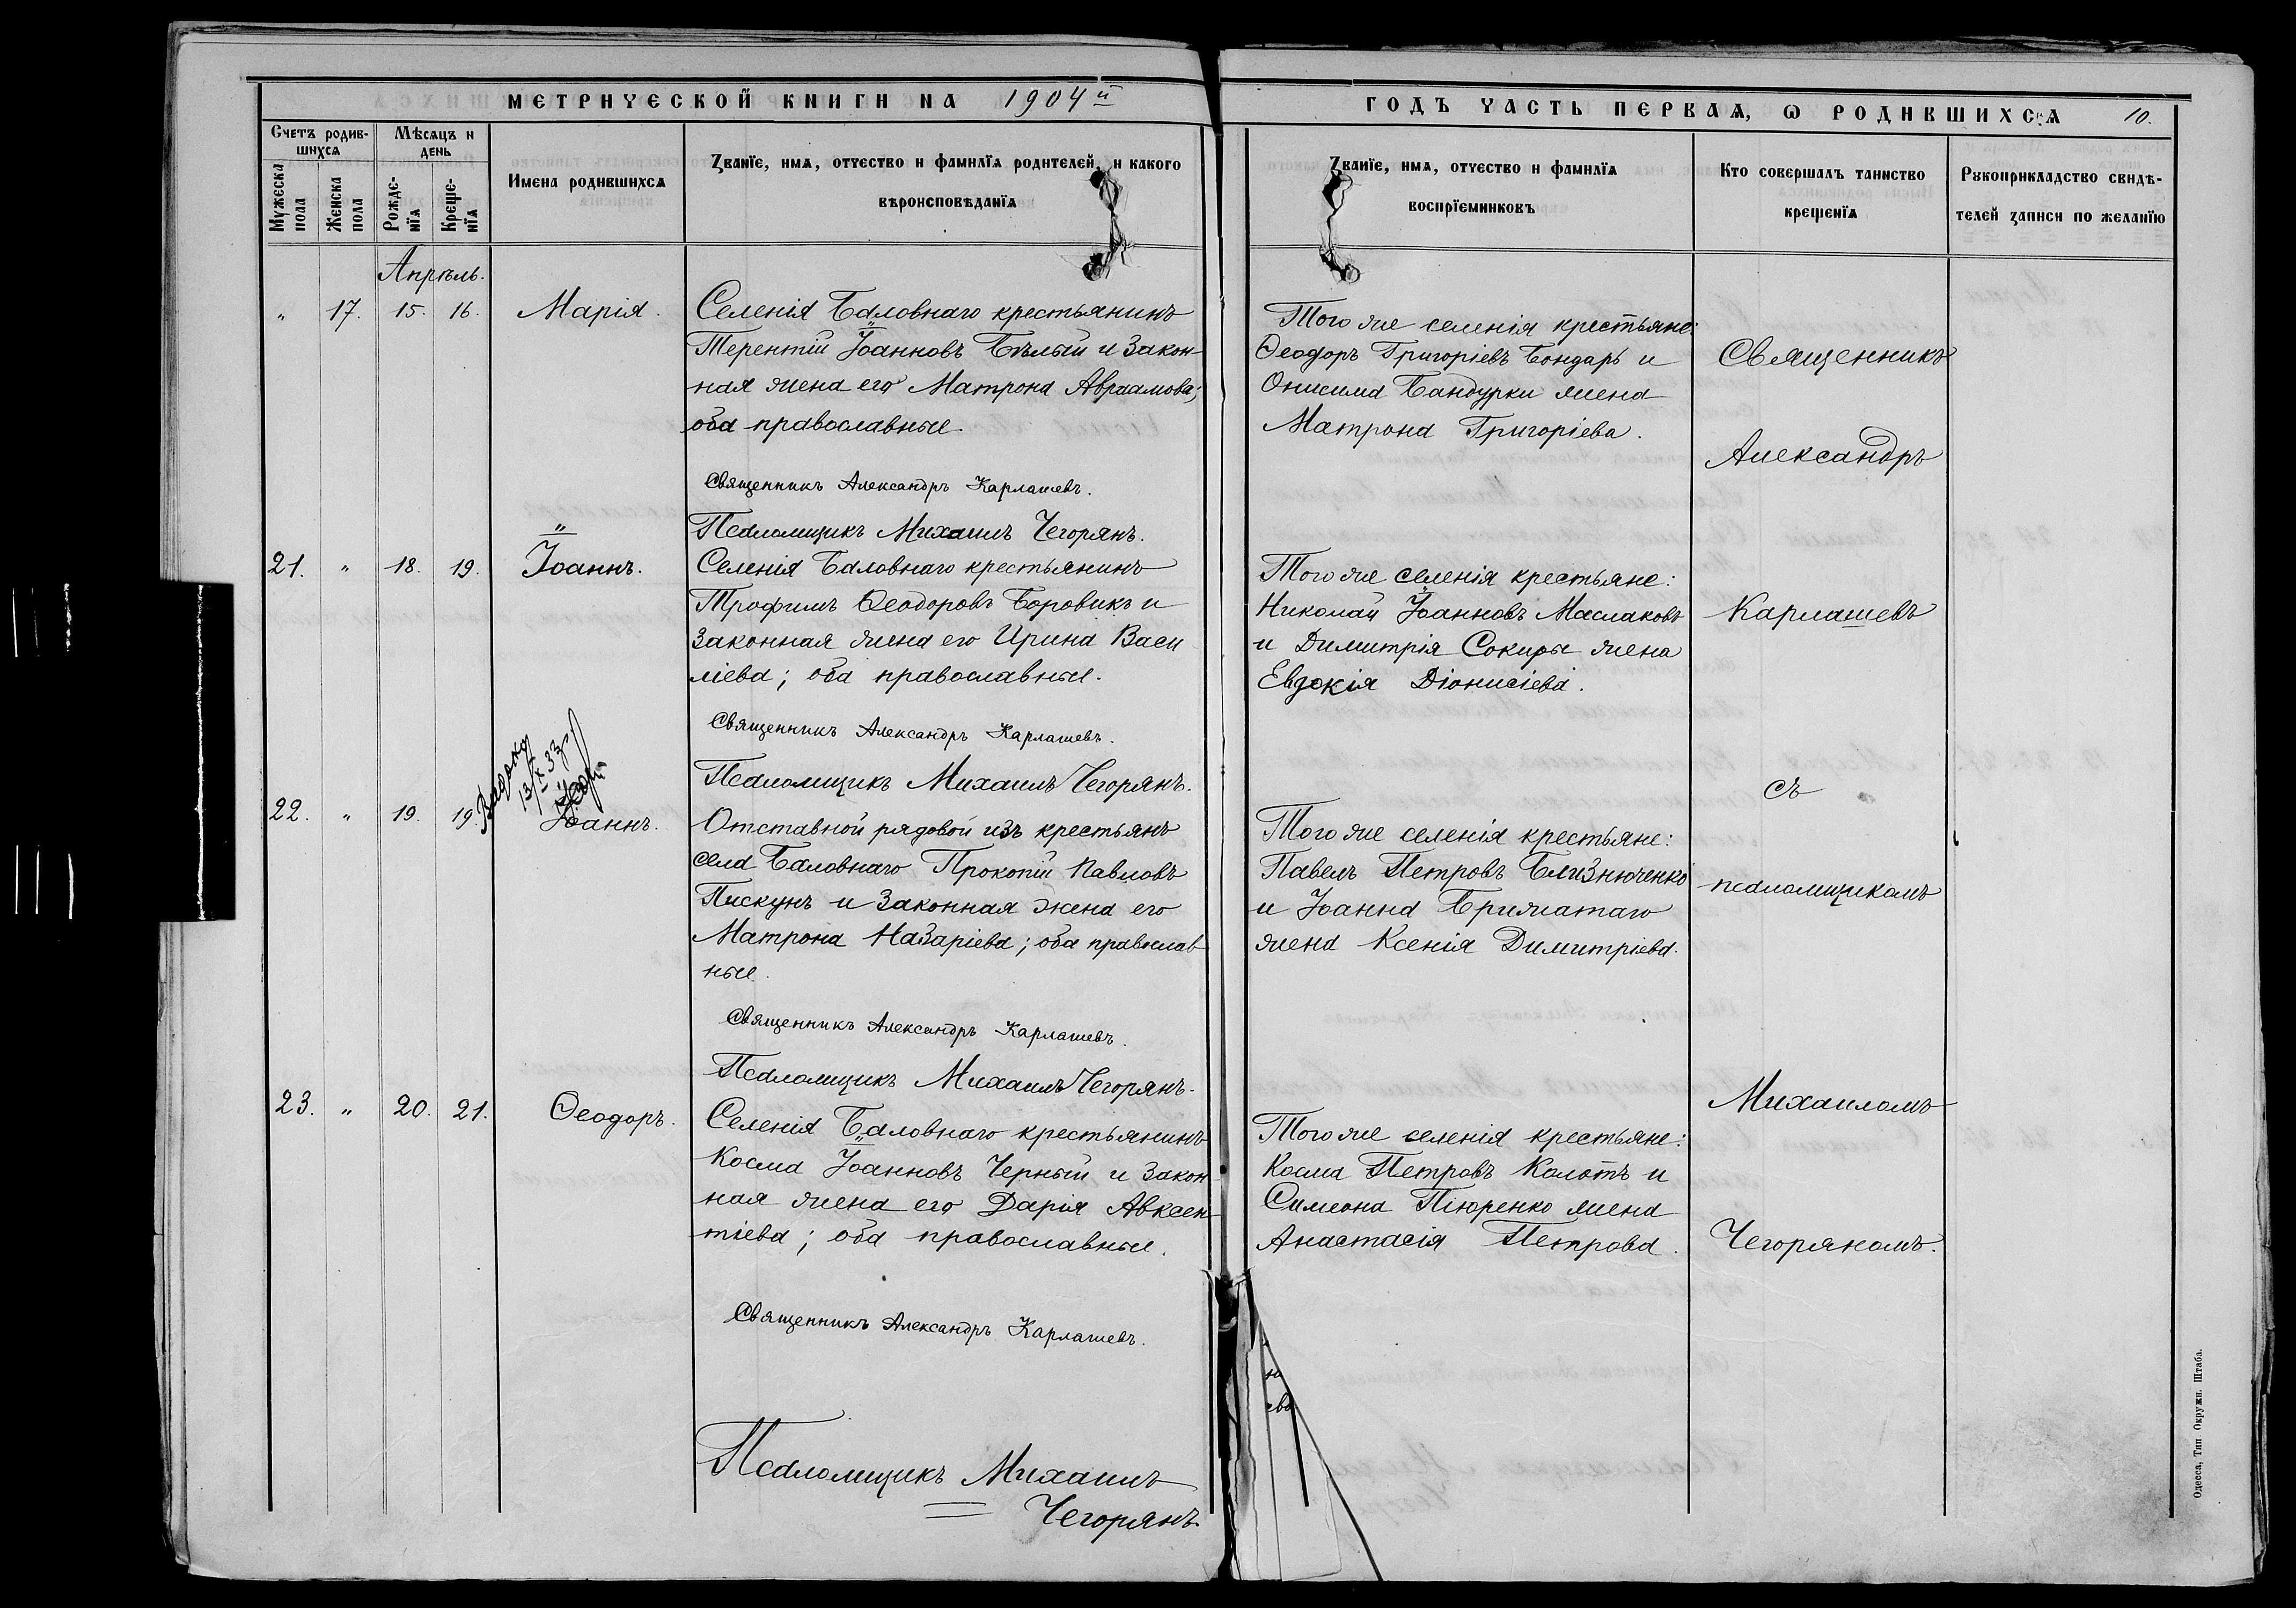 МЕТРИЧЕСКОЙ КНИГИ НА 1904й
ГОДЪ ЧАСТЬ ПЕРВАЯ, Ѡ РОДИВШИХСЯ
10.
Счетъ родив-
шихся
Мѣсяцъ и
день
Мужеска
пола
Женска
пола
Рожде-
нїя
Креще-
нїя
Имена родившихся
Званїе, имя, отчество и фамилїя родителей, и какого
вѣроисповѣданїя
Званїе, имя, отчество и фамилїя
воспрїемниковъ
Кто совершалъ таинство
крещенїя
Рукоприкладство свидѣ-
телей записи по желанїю
Апрѣль.
" 17. 15. 16. Марія.
Селенія Баловнаго крестьянинъ
Терентій Іоанновъ Бѣлый и закон-
ная жена его Матрона Авраамова;
оба православные.
Священникъ Александръ Карлашевъ.
Псаломщикъ Михаилъ Чегорянъ.
Того же селенія крестьяне:
Ѳеодоръ Григоріевъ Бондарь и
Онисима Бандурки жена
Матрона Григоріева.
21. " 18. 19. Іоаннъ.
Селенія Баловнаго крестьянинъ
Трофимъ Ѳеодоровъ Боровикъ и
законная жена его Ирина Васи
ліева; оба православные.
Священникъ Александръ Карлашевъ.
Псаломщикъ Михаилъ Чегорянъ.
Того же селенія крестьяне:
Николай Іоанновъ Маслаковъ
и Димитрія Сокиры жена
Евдокія Діонисіева.
13/X 33
22. " 19. 19. Іоаннъ.
Отставной рядовой изъ крестьянъ
села Баловнаго Прокопій Павловъ
Пискунъ и законная жена его
Матрона Назаріева; оба православ
ные.
Священникъ Александръ Карлашевъ.
Псаломщикъ Михаилъ Чегорянъ.
Того же селенія крестьяне:
Павелъ Петровъ Близнюченко
и Іоанна Брижатаго
жена Ксенія Димитріева.
23. " 20. 21. Ѳеодоръ.
Селенія Баловнаго крестьянинъ
Косма Іоанновъ Черный и закон
ная жена его Дарія Авксен
тіева; оба православные.
Священникъ Александръ Карлашевъ.
Псаломщикъ Михаилъ
Чегорянъ.
Того же селенія крестьяне:
Косма Петровъ Колотъ и
Симеона Пюренко жена
Анастасія Петрова.
Священникъ
Александръ
Карлашевъ
съ
псаломщикомъ
Михаиломъ
Чегоряномъ.
Одесса, Тип Окружн. Штаба.